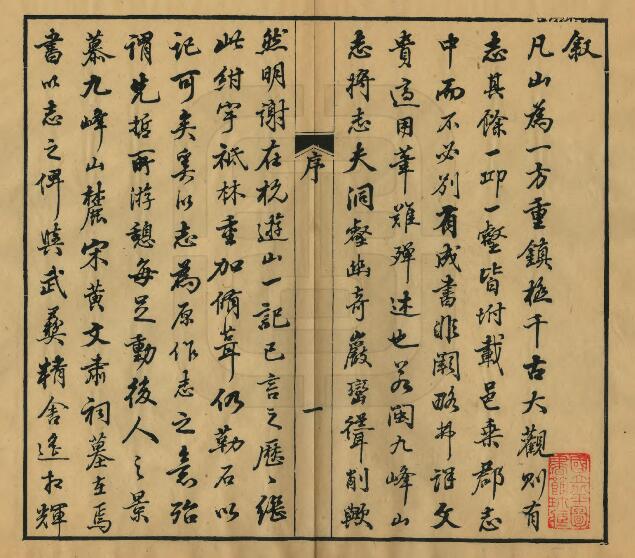 叙
凡山為一方重鎮極千古大觀則有
志其餘一邱一壑皆坿載邑乘郡志
中而不必別有成書非闕略抑詳文
貴適用華難殫述也若閩九峰山
志將志夫洞壑幽奇巖巒聳削歟
序
一
然明謝在杭遊山一記已言之歷歷繼
此紺宇祇林重加脩葺仍勒石以
記可矣奚以志為原作志之意殆
謂先哲所游憩每足動後人之景
慕九峰山麓宋黄文肅祠墓在焉
書以志之俾與武彝精舍遙相輝